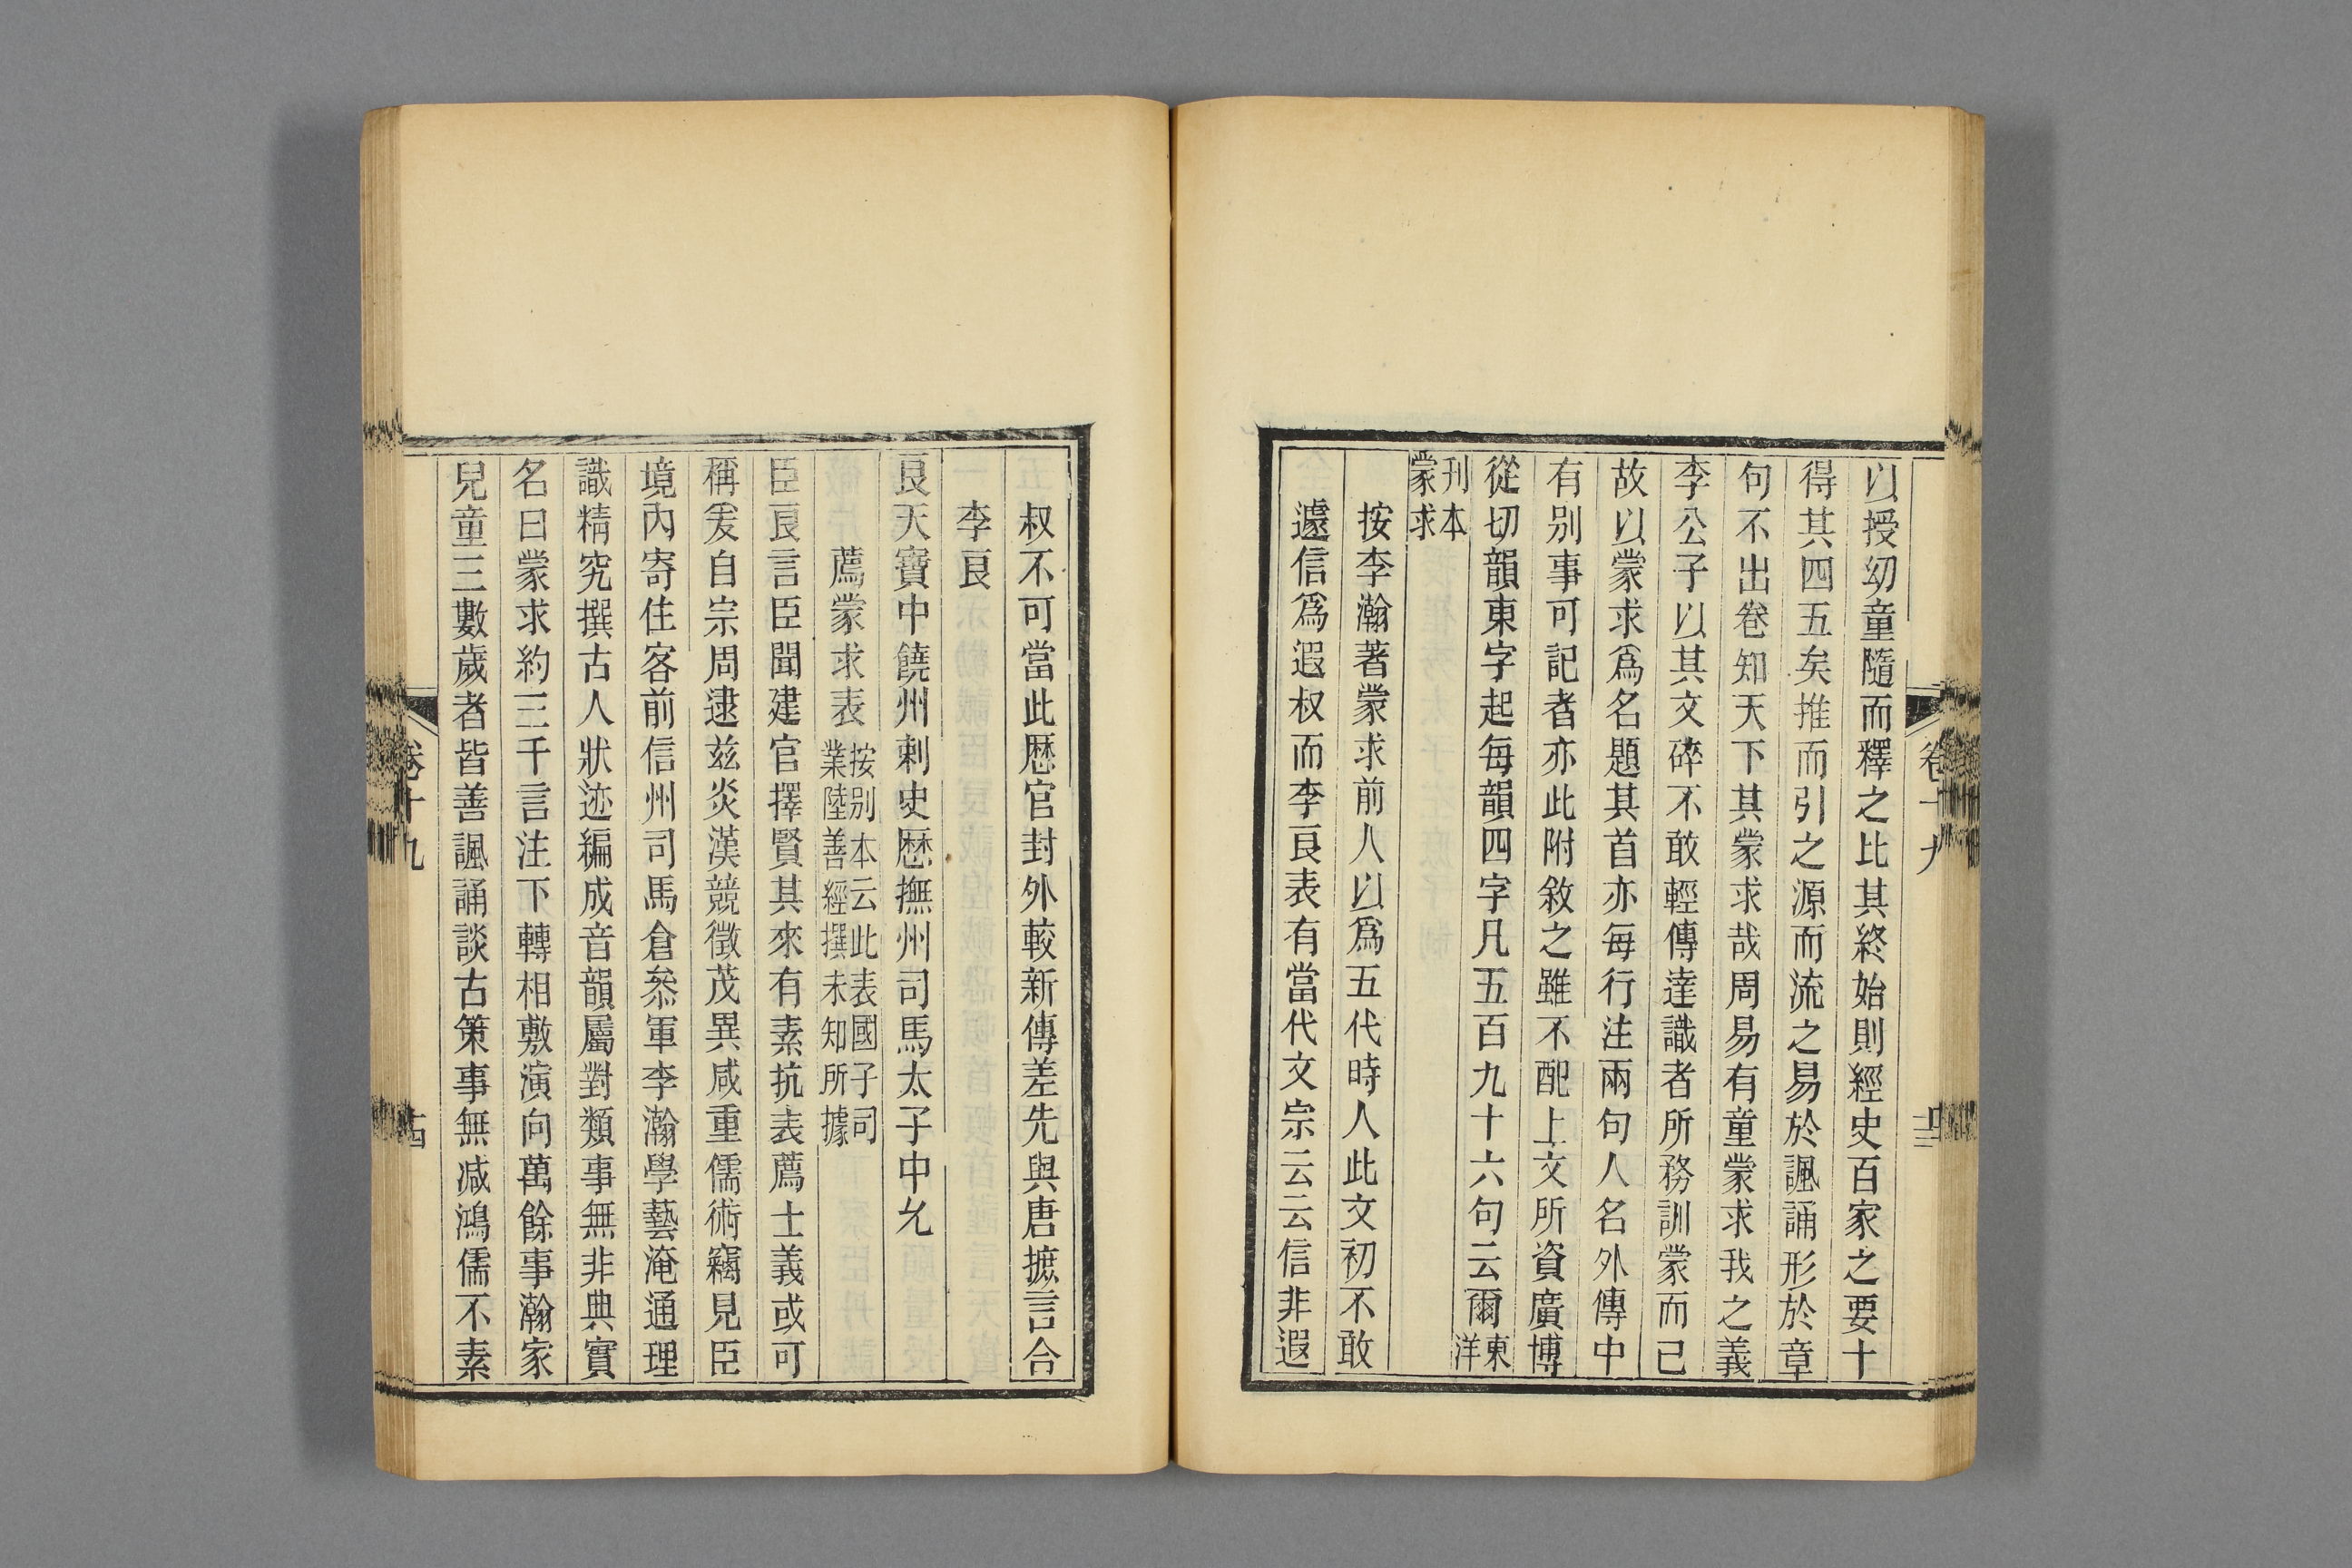 以授幼童隨而釋之比其終始則經史百家之要十
得其四五矣推而引之源而流之易於諷誦形於章
句不出卷知天下其蒙求哉周易有童蒙求我之義
李公子以其文碎不敢輕傳達識者所務訓蒙而已
故以蒙求爲名題其首亦每行注兩句人名外傳中
有别事可記者亦此附敘之雖不配上文所資廣博
從切韻東字起每韻四字凡五百九十六句云爾東
洋
刊本
蒙求
按李瀚著蒙求前人以爲五代時人此文初不敢
遽信爲遐叔而李良表有當代文宗云云信非遐
叔不可當此歴官封外較新傳差先與唐摭言合
李良
良天寶中饒州刺史歴撫州司馬太子中允
薦蒙求表
按别本云此表國子司
業陸善經撰未知所據
臣良言臣聞建官擇賢其來有素抗表薦士義或可
稱爰自宗周逮兹炎漢競徵茂異咸重儒術竊見臣
境内寄住客前信州司馬倉叅軍李瀚學藝淹通理
識精究撰古人狀迹編成音韻屬對類事無非典實
名曰蒙求約三千言注下轉相敷演向萬餘事瀚家
兒童三數歲者皆善諷誦談古策事無减鴻儒不素
卷十九
十三
卷十九
十四